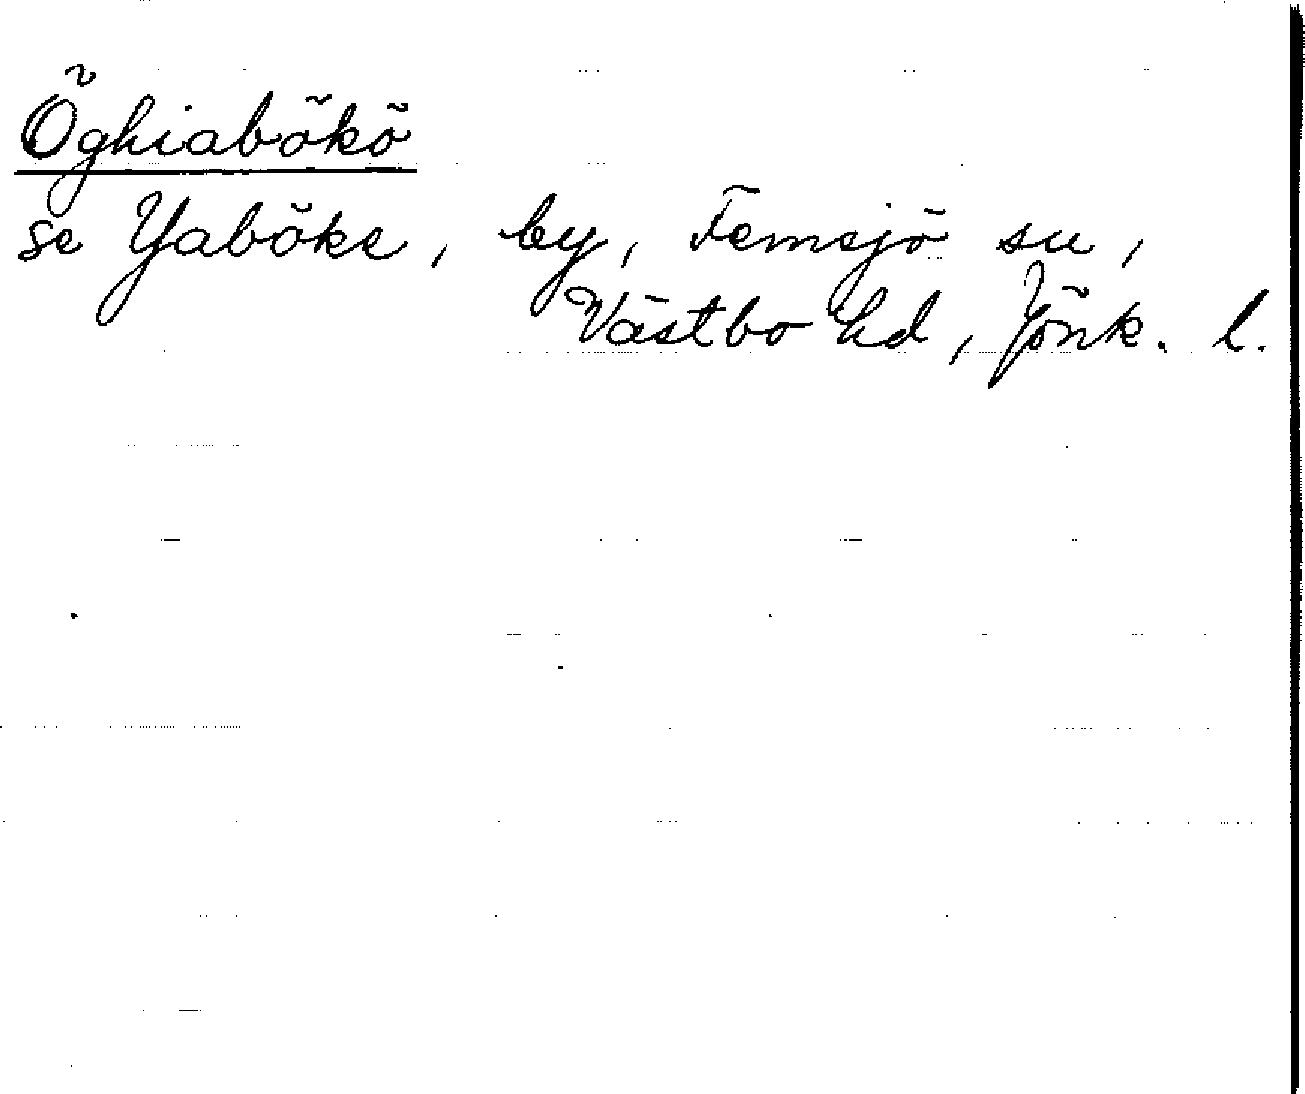 Öghiabökö
se Yaböke, by, Femsjö su,
Västbo hd, Jönk. l.